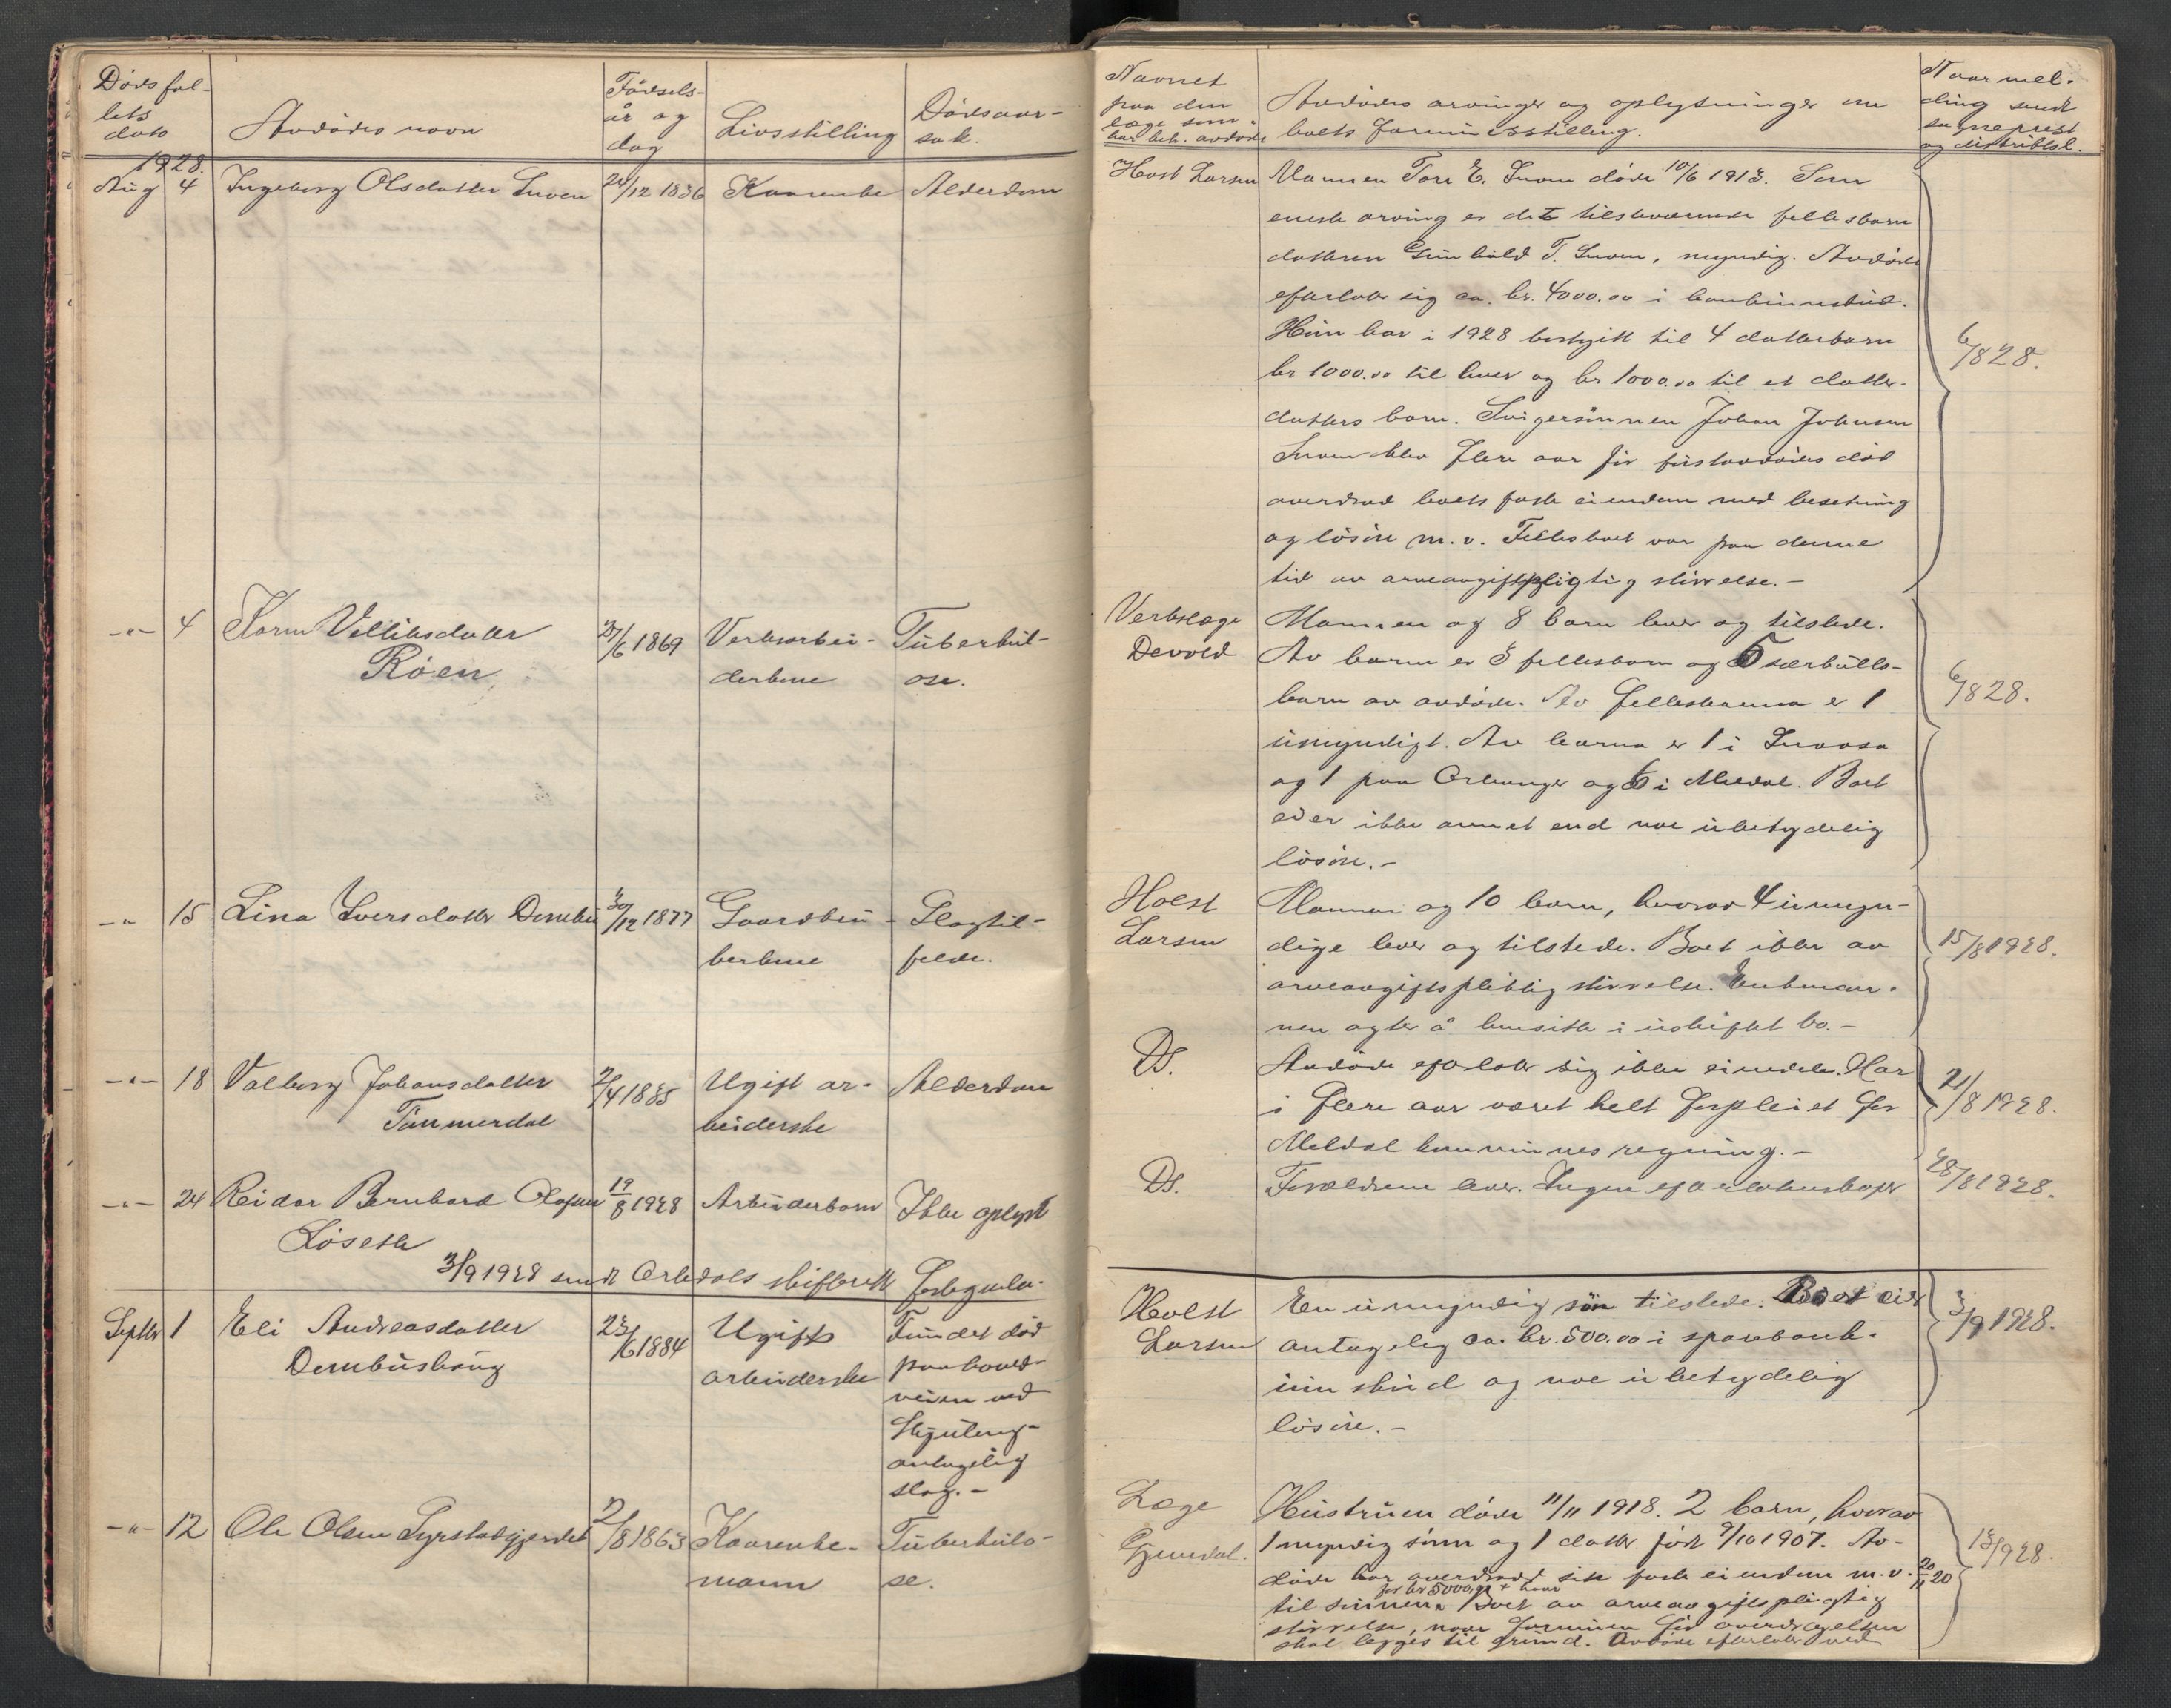 Dødsfal-
lets
dato
Avdødes navn
Fødsels-
år og
dag
Livsstilling
Dødsaar-
sak.
1928.
Aug 4 Ingeborg Olsdatter Snoen 24/12 1836 Kaarenke Alderdom
-"- 4 Karen Velliksdatter 27/6 1869 Verksarbei- Tuberkul-
Røen derkone ose.
-"- 15 Lina Iversdatter 30/12 1877 Gaardbru- Slagtil-
kerkone felde.
-"- 18 Valborg Johansdatter 2/4 1835 Ugift ar- Alderdom
Tømmerdal beiderske
-"- 24 Reidar Bernhard Olsen 19/8 1928 Arbeiderbarn Ikke oplyst
Løseth
3/9 1928 sendt Orkdals skifterett
Septbr 1 Eli Andreasdatter 23/6 1884 Ugift Fundet død
Drombushaug arbeiderske paa hoved-
veien ved
antagelig
slag.-
-"- 12 Ole Olsen Syrstadgjerdet 2/8 1863 Kaarenke- Tuberkulo-
mann se.
Navnet
paa den
læge som
har beh. avdøde
Avdødes arvinger og oplysninger om
boets formuesstilling.
Naar mel-
ding sendt
sogneprest
og distriktsl.
Holst Larsen Mannen Tore E. Snoen døde 10/6 1913. Som
eneste arving er det tilstedeværende fellesbarn
datteren Gunhild T. Snoen, myndig. Avdøde
efterlater sig ca. kr. 4000.00 i bankinnskud.
Hun har i 1928 bortgitt til 4 datterbarn
kr 1000.00 til hver og kr 1000.00 til et datter-
datters barn. Svigersønnen Johan Johnsen
Snoen blev flere aar før førstavdødes død
overdrad boets faste eiendom med besetning
og løsøre m.v. Fellesboet var paa denne
tid av arveavgiftspligtig størrelse.-
6/8 28.
Verkslæge Mannen og 8 barn lever og tilstede.
Devold Av barna er 3 fellesbarn og 5 særkulls-
barn av avdøde. Av fellesbarna er 1
umyndigt. Av barna er 1 i Snaasa
og 1 paa Orkanger og 6 i Meldal. Boet
eier ikke annet end noe ubetydelig
løsøre.-
6/8 28.
Holst Mannen og 10 barn, hvorav 4 umyn-
Larsen dige lever og tilstede. Boet ikke av
arveavgiftspliktig størrelse. Enkeman-
nen agter å hensitte i uskiftet bo.-
15/8 1928.
Ds. Avdøde efterlater sig ikke eiendele. Har
i flere aar været helt forpleiet for
Meldal kommunes regning.-
21/8 1928.
Ds. Forældrene lever. Ingen efterlatenskaper
28/8 1928.
Holst En umyndig søn tilstede. Boet eier
Larsen antagelig ca. kr. 500.00 i sparebank-
innskud og noe ubetydelig
løsøre.-
3/9 1928.
Læge Hustruen døde 11/11 1918. 2 barn, hvorav
Gjendal. 1 myndig sønn og 1 datter født 9/10 1907. Av-
døde har overdradd sin faste eiendom m.v. 20/11 20
for kr 5000,00 + kaar
til sønnen. Boet av arveavgiftspligtig
størrelse, naar formuen før overdragelsen
skal legges til grund. Avdøde efterlater ved
13/9 28.